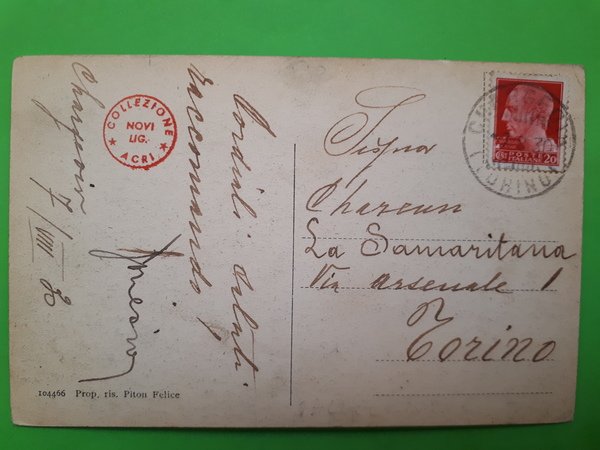 Charjoux 7/VIII 30
Cordiali saluti
raccomando
COLLEZIONE
NOVI
LIG.
ACRI
POSTE
ITALIANE
20
TORINO
Sig.na
La Samaritana
Via Arsenale 1
Torino
104466 Prop. ris. Piton Felice